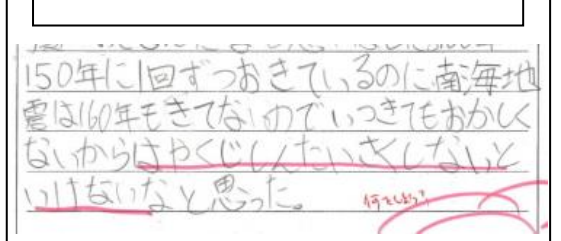 150年に1回ずつおきているのに南海地
震は160年もきてないのでいつきてもおかしく
ないからはやくじしんたいさくしないと
いけないなと思った。